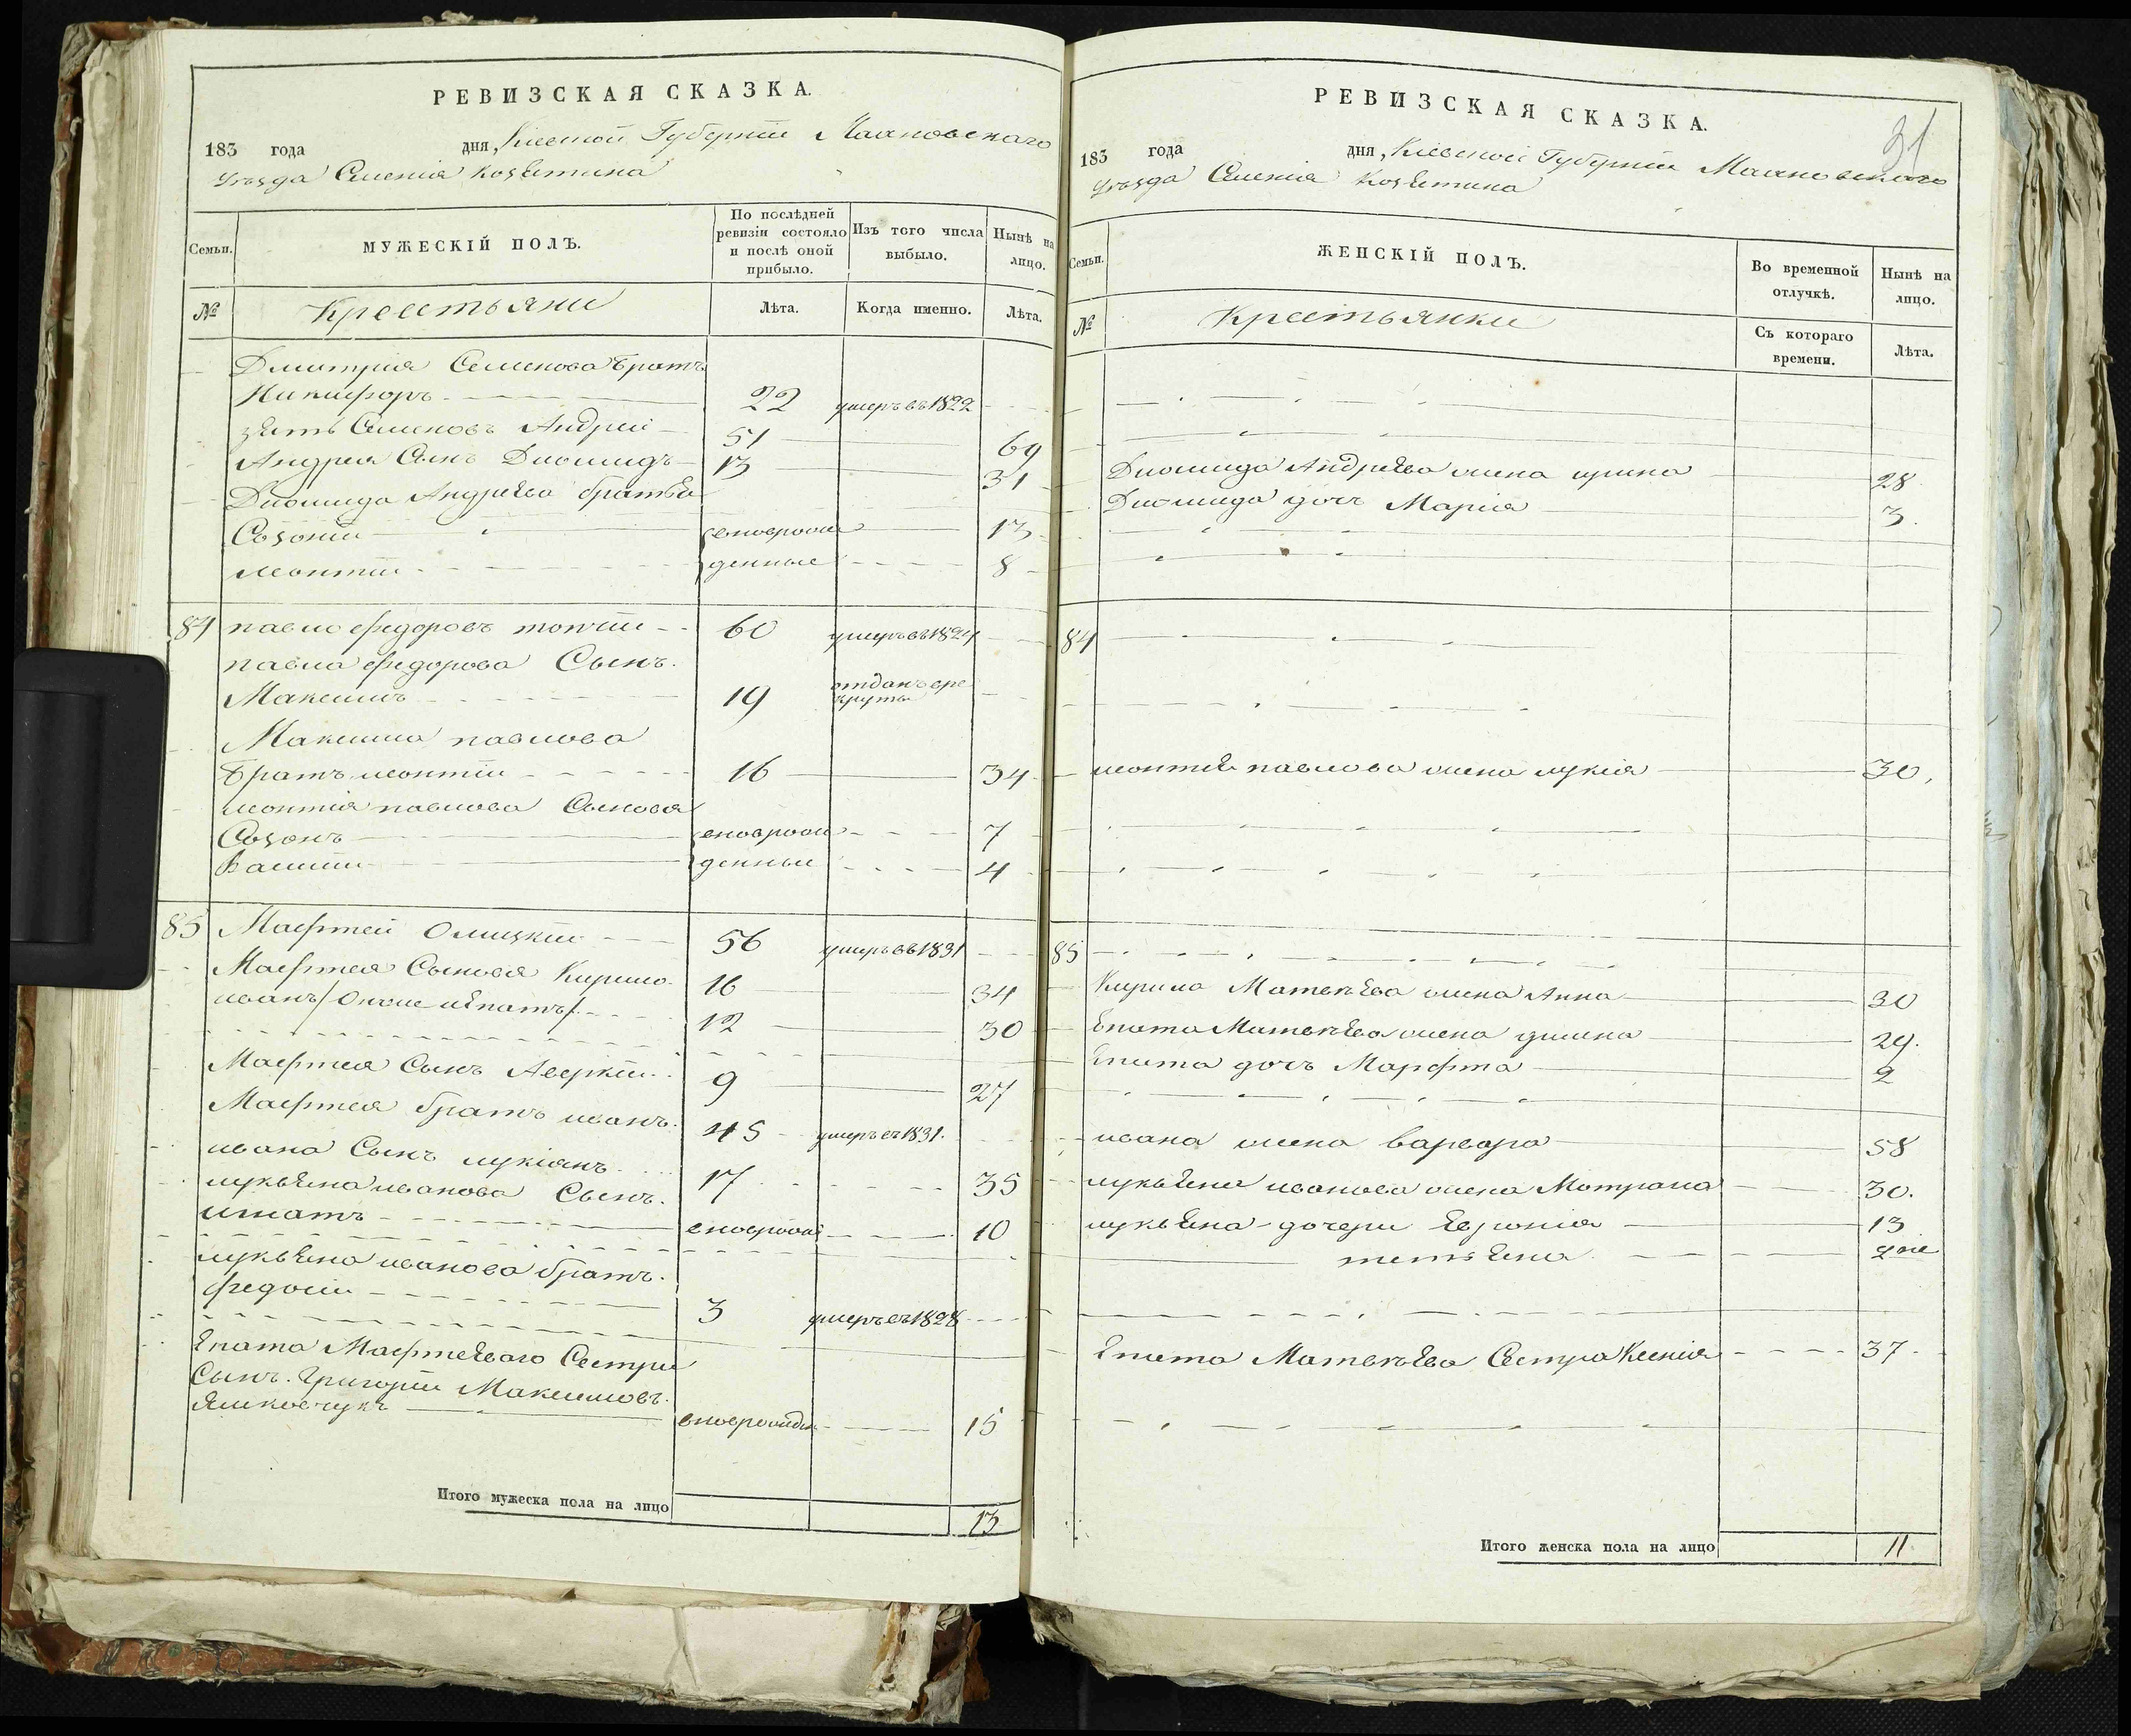 РЕВИЗСКАЯ СКАЗКА.
183 года дня, Кіевской Губерніи Махновскаго
уѣзда Селенія Козѣтина
Семьи.
МУЖЕСКІЙ ПОЛЪ.
По послѣдней ревизіи состояло и послѣ оной прибыло.
Изъ того числа выбыло.
Нынѣ на лицо.
№
Крестьяни
Лѣта.
Когда именно.
Лѣта.
Дмитрія Семенова братъ
Никифоръ 22 умеръ въ 1822
зять Семеновъ Андрей 51 69
Андрея Сынъ Диомидъ 13 31
Диомида Андрѣева братья
Созонтій вновророж 13
леонтій денные 8
84 павло федоровъ 60 умеръ въ 1824
павла федорова Сынъ.
Максимъ 19 отданъ в ре
круты
Максима павлова
братъ леонтій 16 34
леонтія павлова Сыновья
Созонъ вноврож 7
Василій денные 4
85 Мафтей Олицкій 56 умеръ в в 1831
Мафтея Сыновья Кирило 16 34
иванъ/ Онже иѣпатъ/ 12 30
Мафтея Сынъ Аверкій 9 27
Мафтея братъ иванъ. 45 умеръ въ 1831.
ивана Сынъ лукіянъ 17 35
лукѣяна иванова Сынъ.
игнатъ вноврож 10
лукьяна иванова братъ.
федосій 3 умеръ въ 1828
Епата Мафтеѣваго Сестри
Сынъ. Григорій Максимовъ.
вноврожд 15
Итого мужеска пола на лицо 13
РЕВИЗСКАЯ СКАЗКА.
31
183 года дня, Кіевской Губерніи Махновскаго
уѣзда Селенія Козѣтина
Семьи.
ЖЕНСКІЙ ПОЛЪ.
Во временной отлучкѣ.
Нынѣ на лицо.
№
Крестьянки
Съ котораго времени.
Лѣта.
Диомида Андрѣева жена ирина 28
Диомида дочъ Марія 3.
84
леонтія павлова жена лукія 30,
85
Кирила Матвѣева жена Анна 30
Епата Матвѣева жена 29.
Епата дочъ Марфта 2
ивана жена варвара 58
лукьяна иванова жена Мотрона 30.
лукьяна дочери 13
тетьяна
Епата Матвѣева Сестра Ксенія 37
Итого женска пола на лицо 11